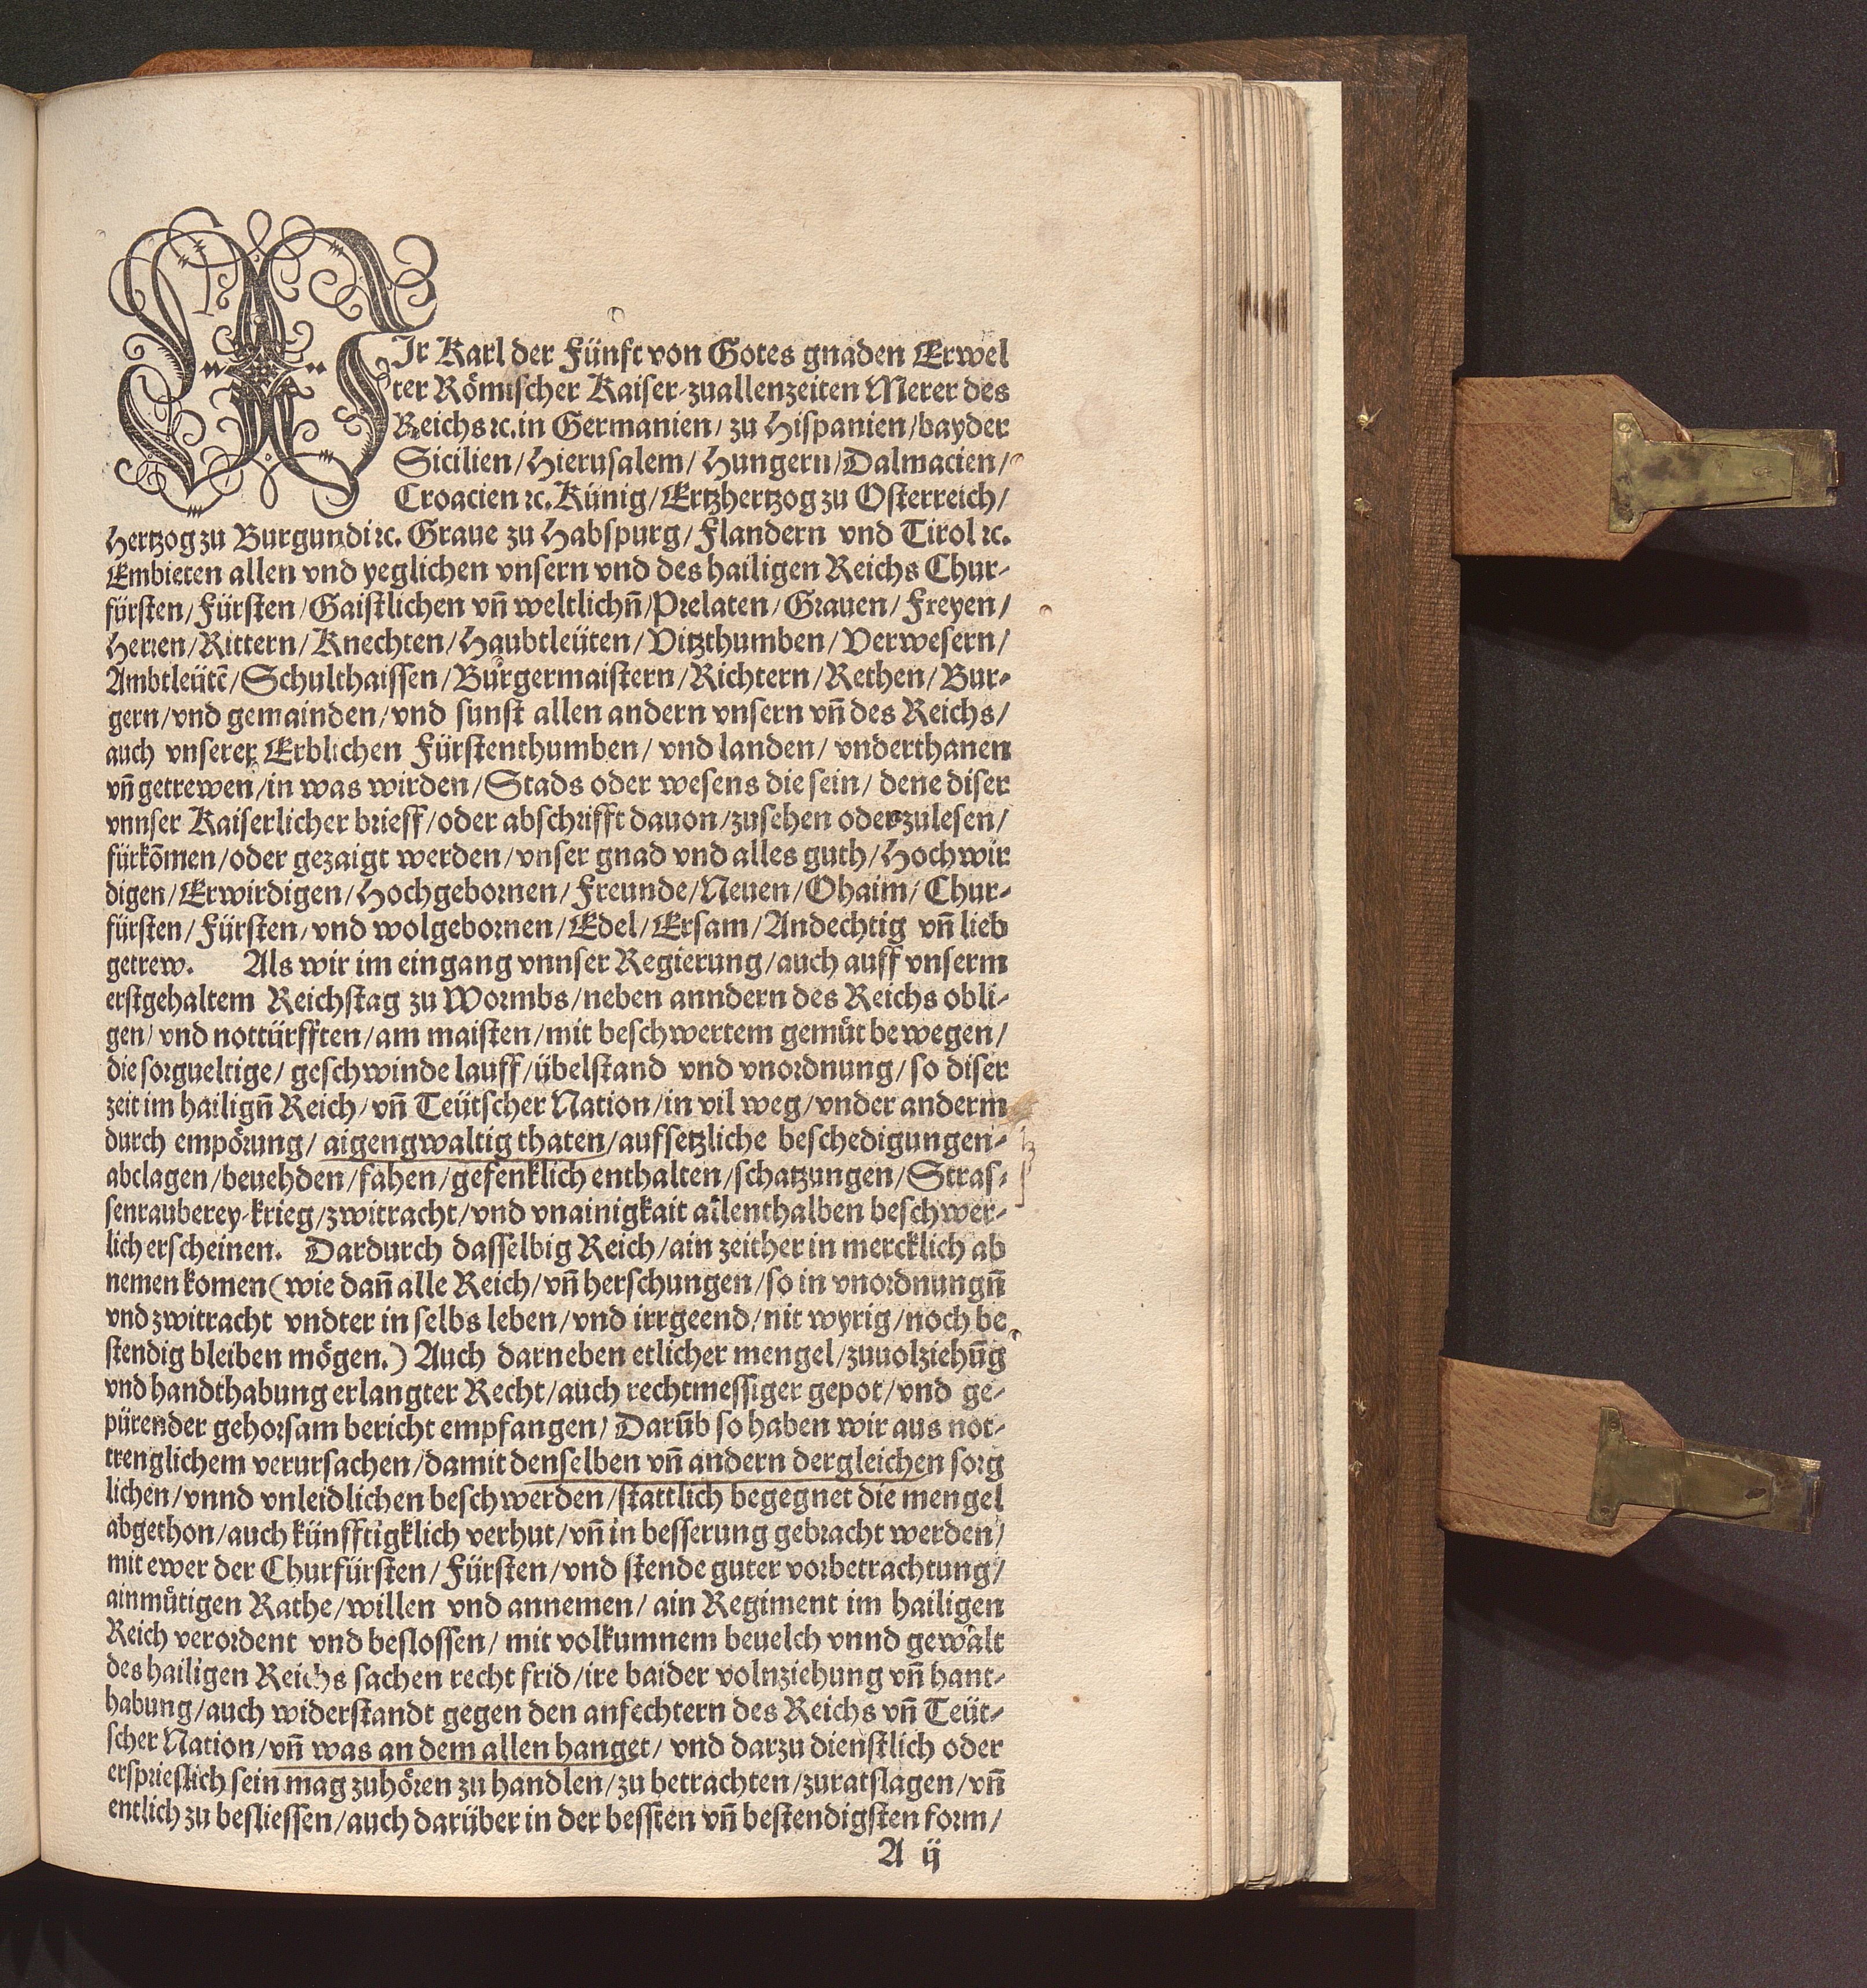 WIr Karl der Fünft von Gotes gnaden Erwel
ter Römischer Kaiser-zuallenzeiten Merer des
Reichs ꝛc. in Germanien/ zu Hispanien/bayder
Sicilien/Hierusalem/ Hungern/Dalmacien/
Croacien ꝛc. Künig/Ertzhertzog zu Osterreich/
Hertzog zu Burgundi ꝛc. Graue zu Habspurg/Flandern vnd Tirol ꝛc.
Embieten allen vnd yeglichen vnsern vnd des hailigen Reichs Chur-
fürsten/Fürsten/Gaistlichen vn̄ weltlichn̄/Prelaten/Grauen/Freyen/
Herren/Rittern/Knechten/Haubtleüten/Vitzthumben/Verwesern/
Ambtleütē/Schulthaissen/Burgermaistern/Richtern/Rethen/Bur-
gern/vnd gemainden/vnd sunst allen andern vnsern vn̄ des Reichs/
auch vnserer Erblichen Fürstenthumben/ vnd landen/ vnderthanen
vn̄ getrewen/in was wirden/Stads oder wesens die sein/ dene diser
vnnser Kaiserlicher brieff/oder abschrifft dauon/zusehen oder zulesen/
fürkōmen/oder gezaigt werden/vnser gnad vnd alles guth/Hochwir
digen/Erwirdigen/Hochgebornen/Freunde/Neuen/Ohaim/Chur-
fürsten/Fürsten/vnd wolgebornen/Edel/Ersam/Andechtig vn̄ lieb
getrew. Als wir im eingang vnnser Regierung/auch auff vnserm
erstgehaltem Reichstag zu Wormbs/neben anndern des Reichs obli-
gen/vnd nottürfften/am maisten/mit beschwertem gemüt bewegen/
die sorgueltige/ geschwinde lauff/übelstand vnd vnordnung/so diser
zeit im hailign̄ Reich/vn̄ Teütscher Nation/in vil weg/vnder anderm
durch empörung/ aigengwaltig thaten/aufsetzliche beschedigungen-
abclagen/beuehden/fahen/gefenklich enthalten/schatzungen/Stras-
senrauberey-krieg/zwitracht/vnd vnainigkait allenthalben beschwer-
lich erscheinen. Dardurch dasselbig Reich/ain zeither in mercklich ab
nemen komen(wie dan̄ alle Reich/vn̄ herschungen/so in vnordnungn̄
vnd zwitracht vndter in selbs leben/vnd irrgeend/nit wyrig/noch be
stendig bleiben mögen.) Auch darneben etlicher mengel/zuuolziehūg
vnd handthabung erlangter Recht/auch rechtmessiger gepot/vnd ge-
pürender gehorsam bericht empfangen/ Darūb so haben wir aus not-
trenglichem verursachen/damit denselben vn̄ andern dergleichen sorg
lichen/vnnd vnleidlichen beschwerden/stattlich begegnet die mengel
abgethon/auch künfftigklich verhut/vn̄ in besserung gebracht werden/
mit ewer der Churfürsten/Fürsten/vnd stende guter vorbetrachtung/
ainmütigen Rathe/willen vnd annemen/ ain Regiment im hailigen
Reich verordent vnd beslossen/ mit volkumnem beuelch vnnd gewalt
des hailigen Reichs sachen recht frid/ire baider volnziehung vn̄ hant-
habung/auch widerstandt gegen den anfechtern des Reichs vn̄ Teüt-
scher Nation/vn̄ was an dem allen hanget/ vnd darzu dienstlich oder
ersprieslich sein mag zuhören zu handlen/zu betrachten/zuratslagen/vn̄
entlich zu besliessen/auch darüber in der bessten vn̄ bestendigsten form/
A ij